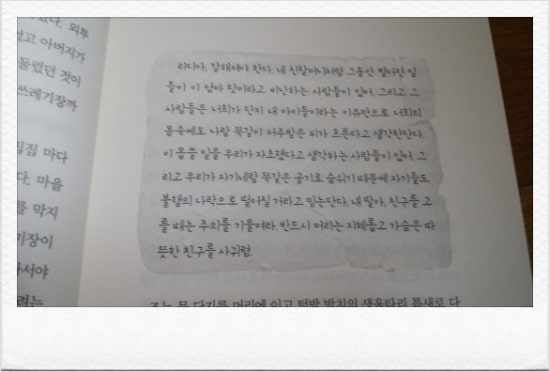 었다. 외투
었고 아버지가
둘렀던 것이
쓰레기장까
집집 마다
다. 마을
를 막지
기장이
라서야
려는
리디아, 강해져야 한다. 내 친할머니처럼 그동안 벌어진 일
들이 이 엄마 탓이라고 비난하는 사람들이 있어. 그리고 그
사람들은 너희가 단지 내 아이들이라는 이유만으로 너희의
몸속에도 나랑 똑같이 저주받은 피가 흐른다고 생각한단다.
이 몹쓸 일을 우리가 자초했다고 생각하는 사람들이 있어. 그
리고 우리가 자기네랑 똑같은 공기로 숨쉬기 때문에 자기들도
불행의 나락으로 떨어질 거라고 믿는단다. 내 딸아, 친구를 고
를 때는 주의를 기울여라. 반드시 머리는 지혜롭고 가슴은 따
뜻한 친구를 사귀렴.
조는 물 단지를 머리에 이고 텃밭 발치의 생울타리 틈새로 다